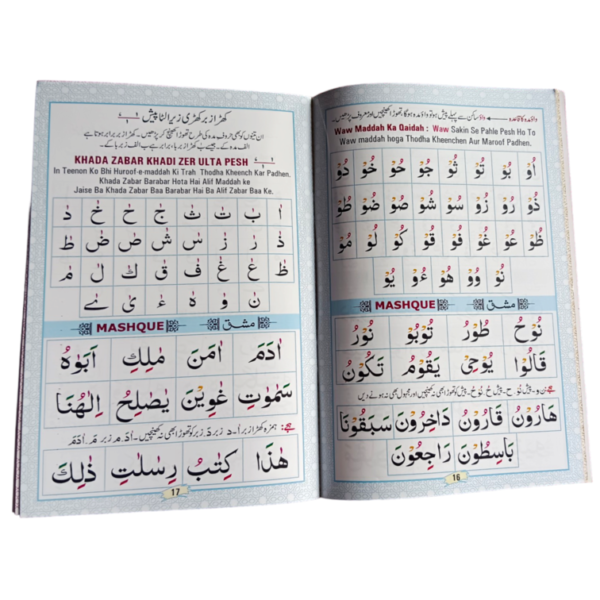 واؤ مدہ کا قاعدہ ● واؤ ساکن سے پہلے پیش ہو تو واؤ مدہ ہوگا، تھوڑا کھینچیں اور معروف پڑھیں۔
Waw Maddah Ka Qaidah : Waw Sakin Se Pahle Pesh Ho To
Waw maddah hoga Thodha Kheenchen Aur Maroof Padhen.
اُوْ بُوْ تُوْ ثُوْ جُوْ حُوْ خُوْ دُوْ
ذُوْ رُوْ زُوْ سُوْ شُوْ صُوْ ضُوْ طُوْ
ظُوْ عُوْ غُوْ فُوْ قُوْ كُوْ لُوْ مُوْ
نُوْ وُوْ هُوْ ءُوْ يُوْ
MASHQUE مشق
نُوْحُ طُوْرُ تُوْبُوْ نُوْرُ
قَالُوْا يُوْحِيْ يَقُوْمُ تَكُوْنُ
پیش کو تھوڑا بھی نہ کھینچیں اور مجہول بھی نہ ہونے دیں
هَارُوْنَ قَارُوْنَ دَاخِرُوْنَ سَبَقُوْنَا
بَاسِطُوْنَ رَاجِعُوْنَ
16
کھڑا زبر کھڑی زیر الٹا پیش
ان تینوں کو بھی حروف مدہ کی طرح تھوڑا کھینچ کر پڑھیں۔ کھڑا زبر برابر ہوتا ہے
الف مدہ کے۔ جیسے بٰ کھڑا زبر با، برابر ہے ب الف زبر با کے۔
KHADA ZABAR KHADI ZER ULTA PESH
In Teenon Ko Bhi Huroof-e-maddah Ki Trah Thodha Kheench Kar Padhen.
Khada Zabar Barabar Hota Hai Alif Maddah ke
Jaise Ba Khada Zabar Baa Barabar Hai Ba Alif Zabar Baa Ke.
اٰ بٰ تٰ ثٰ جٰ حٰ خٰ دٰ
ذٰ رٰ زٰ سٰ شٰ صٰ ضٰ طٰ
ظٰ عٰ غٰ فٰ قٰ كٰ لٰ مٰ
نٰ وٰ هٰ ءٰ يٰ ےٰ
MASHQUE مشق
اٰدَمَ اٰمَنَ مٰلِكِ اَبَوٰهُ
سَمٰوٰتِ غٰوِيْنَ يٰصٰلِحُ اِلٰهُنَا
جیسے: ہمزہ کھڑا زبر اٰ۔ د زبر دَ، زبر کو تھوڑا بھی نہ کھینچیں۔ اٰدَ، م زبر مَ۔ اٰدَمَ
هٰذَا كِتٰبُ رِسٰلٰتِ ذٰلِكَ
17